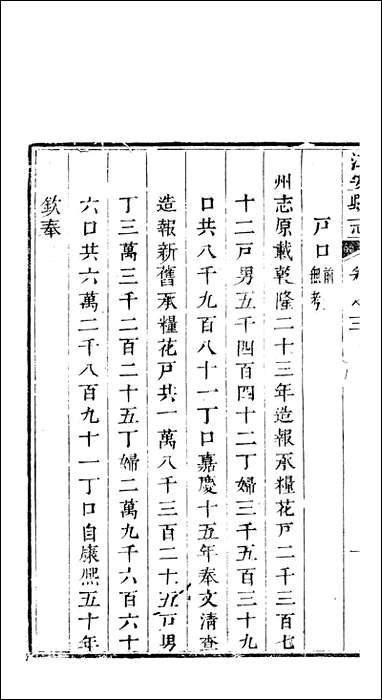 江安縣志 卷之三 一
戶口 前無考
州志原載乾隆二十三年造報承糧花戶二千三百七
十二戶男五千四百四十二丁婦三千五百三十九
口共八千九百八十一丁口嘉慶十五年奉文清查
造報新舊承糧花戶共一萬八千三百二十五戶男
丁三萬三千二百二十五丁婦二萬九千六百六十
六口共六萬二千八百九十一丁口自康熙五十年
欽奉